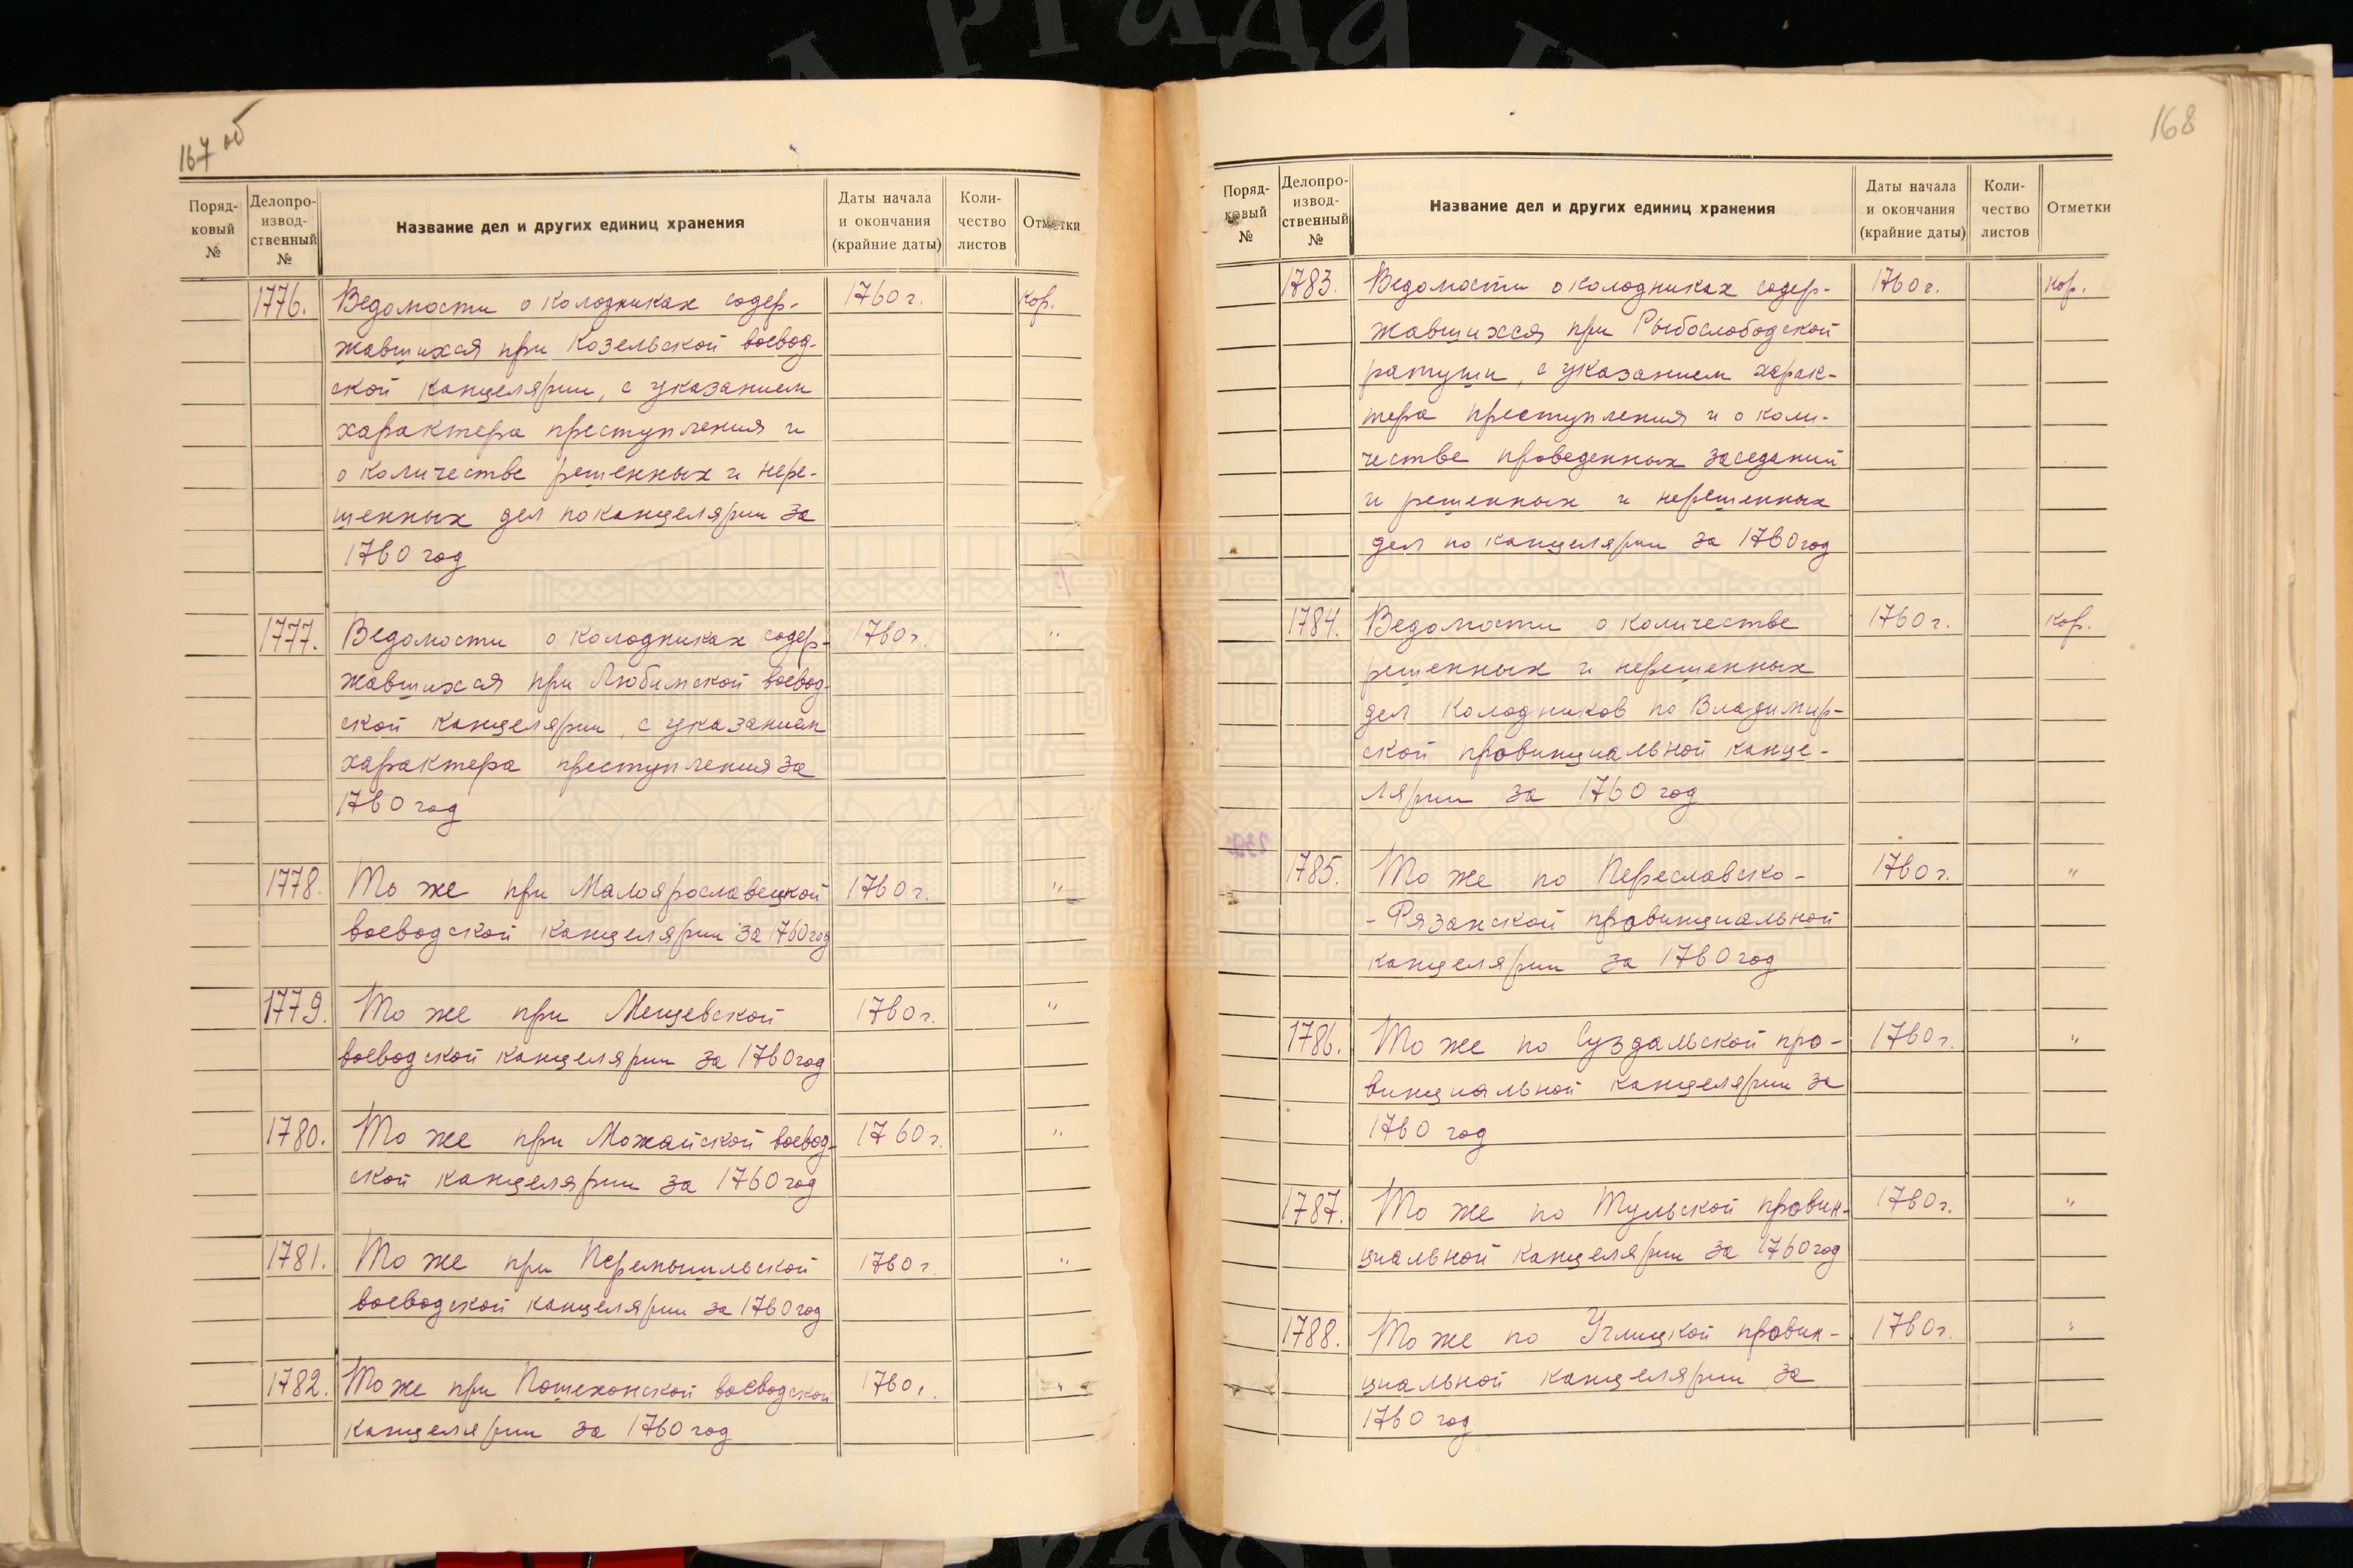 167 об
Поряд-
ковый
№
Делопро-
извод-
ственный
№
Название дел и других единиц хранения
Даты начала
и окончания
(крайние даты)
Коли-
чество
листов
Отметки
1776. Ведомости о колодниках содер- 1760 г. Кор.
жавшихся при Козельской воевод-
ской канцелярии, с указанием
характера преступления и
о количестве решенных и нере-
шенных дел по канцелярии за
1760 год
1777. Ведомости о колодниках содер- 1760 г. "
жавшихся при Любимской воевод-
ской канцелярии, с указанием
характера преступления за
1760 год
1778. То же при Малоярославецкой 1760 г. "
воеводской канцелярии за 1760 год
1779. То же при Мещевской 1760 г. "
воеводской канцелярии за 1760 год
1780. То же при Можайской воевод- 1760 г. "
ской канцелярии за 1760 год
1781. То же при Перемышльской 1760 г. "
воеводской канцелярии за 1760 год
1782. То же при Пошехонской воеводской 1760 г. "
канцелярии за 1760 год
168
Поряд-
ковый
№
Делопро-
извод-
ственный
№
Название дел и других единиц хранения
Даты начала
и окончания
(крайние даты)
Коли-
чество
листов
Отметки
1783. Ведомости о колодниках содер- 1760 г. Кор.
жавшихся при Рыбослободской
ратуши, с указанием харак-
тера преступления и о коли-
честве проведенных заседаний
и решенных и нерешенных
дел по канцелярии за 1760 год
1784. Ведомости о количестве 1760 г. Кор.
решенных и нерешенных
дел колодников по Владимир-
ской провинциальной канце-
лярии за 1760 год
1785. То же по Переславско- 1760 г. "
-Рязанской провинциальной
канцелярии за 1760 год
1786. То же по Суздальской про- 1760 г. "
винциальной канцелярии за
1760 год
1787. То же по Тульской провин- 1760 г. "
циальной канцелярии за 1760 год
1788. То же по Углицкой провин- 1760 г. "
циальной канцелярии за
1760 год